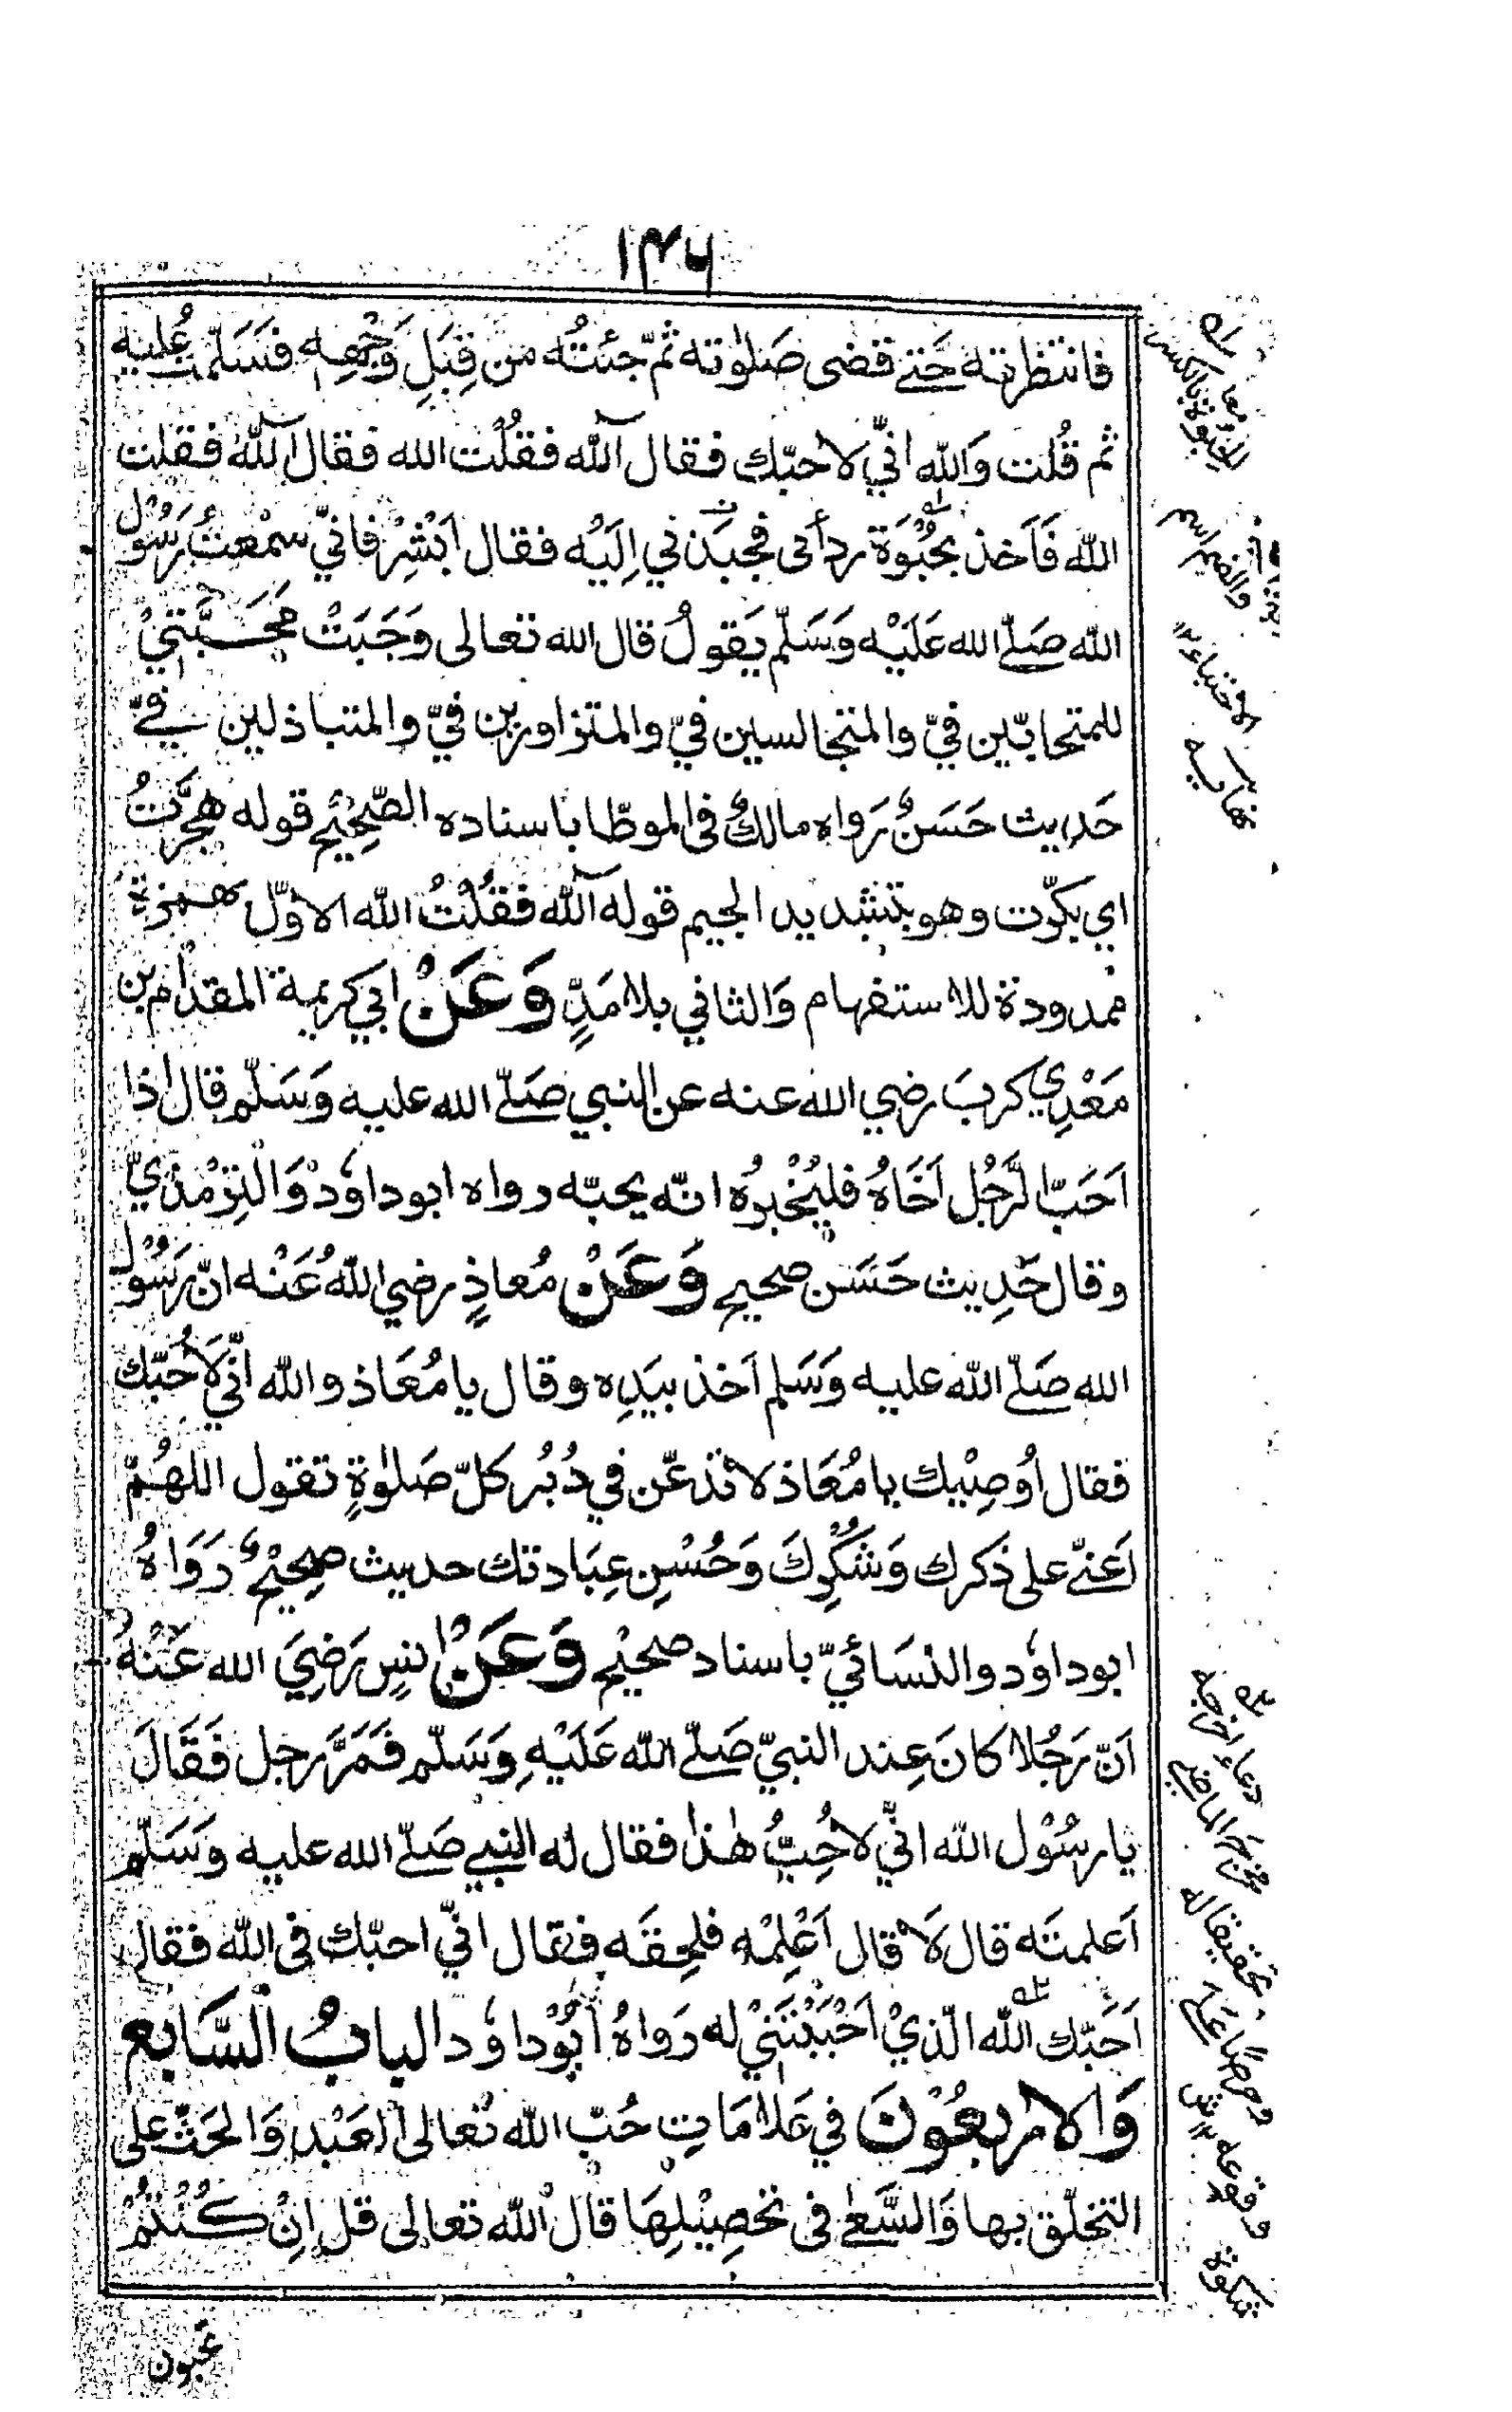 ١٤٦
فانتظرته حَتى قضى صَلوٰته ثمّ جئتُه من قِبَلِ وَجْهِه فَسَلّمتُ عَليه
ثم قُلت وَالله انّي لاحبّك فقال آلله فقُلْت الله فقال آلله فقلت
الله فَاَخذ بحُبْوَة ردائى فجَبَذني اِلَيْه فقال اَبْشِرْ فانيّ سمْعتُ رَسُوْل
الله صَلّى الله عَلَيْه وَسَلّم يَقولُ قال الله تعالى وَجَبَتْ مَحَبَّتيْ
للمتحابّين فيّ والمتجالسين فيّ والمتزاورين فيّ والمتباذلين فيّ
حَديث حَسَنٌ رَواه مالكٌ فى الموطّا باسناده الصّحِيْحِ قوله هجرَّتُ
اي بكّرت وهو بتشديد الجيم قوله آلله فقُلْتُ الله الاوّل بهمزة
ممدودة للاستفهام وَالثاني بلا مَدٍّ وَعَنْ ابي كريمة المقدام بن
مَعْدِي كربَ رضي الله عنه عن النبي صَلّى الله عليه وَسَلّم قال اذا
اَحَبّ الرَّجُل اَخَاهُ فليُخْبرُه انّه يحبّه رواه ابوداوٗدْ وَالتِرْمذيّ
وقال حَدِيث حَسَن صحيح وَعَنْ مُعاذٍ رضي اللهُ عَنْه انّ رَسُوْل
الله صَلّى الله عليه وَسَلم اَخذ بيَدِه وقال يا مُعَاذ والله انّي لاَحُبّك
فقال اُوصِيْك يا مُعَاذ لا تدعّن في دُبُر كلّ صَلوٰةٍ تقول اللهُمّ
اَعنّى على ذكرك وَشُكْرِكَ وَحُسْنِ عِبَادتك حديث صحِيْحٌ رَوَاهُ
ابوداوٗد والنسَائيّ باسناد صحيْح وَعَنْ انسٍ رَضِيَ الله عَنْهُ
اَنّ رَجُلا كانَ عِند النبيّ صَلّى الله عَلَيْهِ وَسَلّم فَمَرَّ رجل فَقَالَ
يا رسُوْل الله انّي لاُحِبُّ هٰذا فقال له النبي صَلّى الله عليه وَسَلّم
اَعلمتَه قال لاَ قال اَعْلِمْه فلحِقَه فقال انّي احبّك فى الله فقال
اَحَبّك الله الّذيْ اَحْبَبْتَنيْ له رَواهُ اَبُوْداوٗد البابُ السَّابع
وَالاربعُوْنَ في عَلامَاتِ حُبّ الله تعالى العَبْد وَالحَثّ على
التخلّق بها وَالسَّعى فى تحصِيْلِهَا قال الله تعالى قل اِنْ كُنْتُمْ
الحبوة بالكسر
والضم
الاحتباء
نهاية
دعاء اخرجه
مخرج الماضي
تحقيقا له
وحرصا على
وقوعه
مشكوة
تحبون